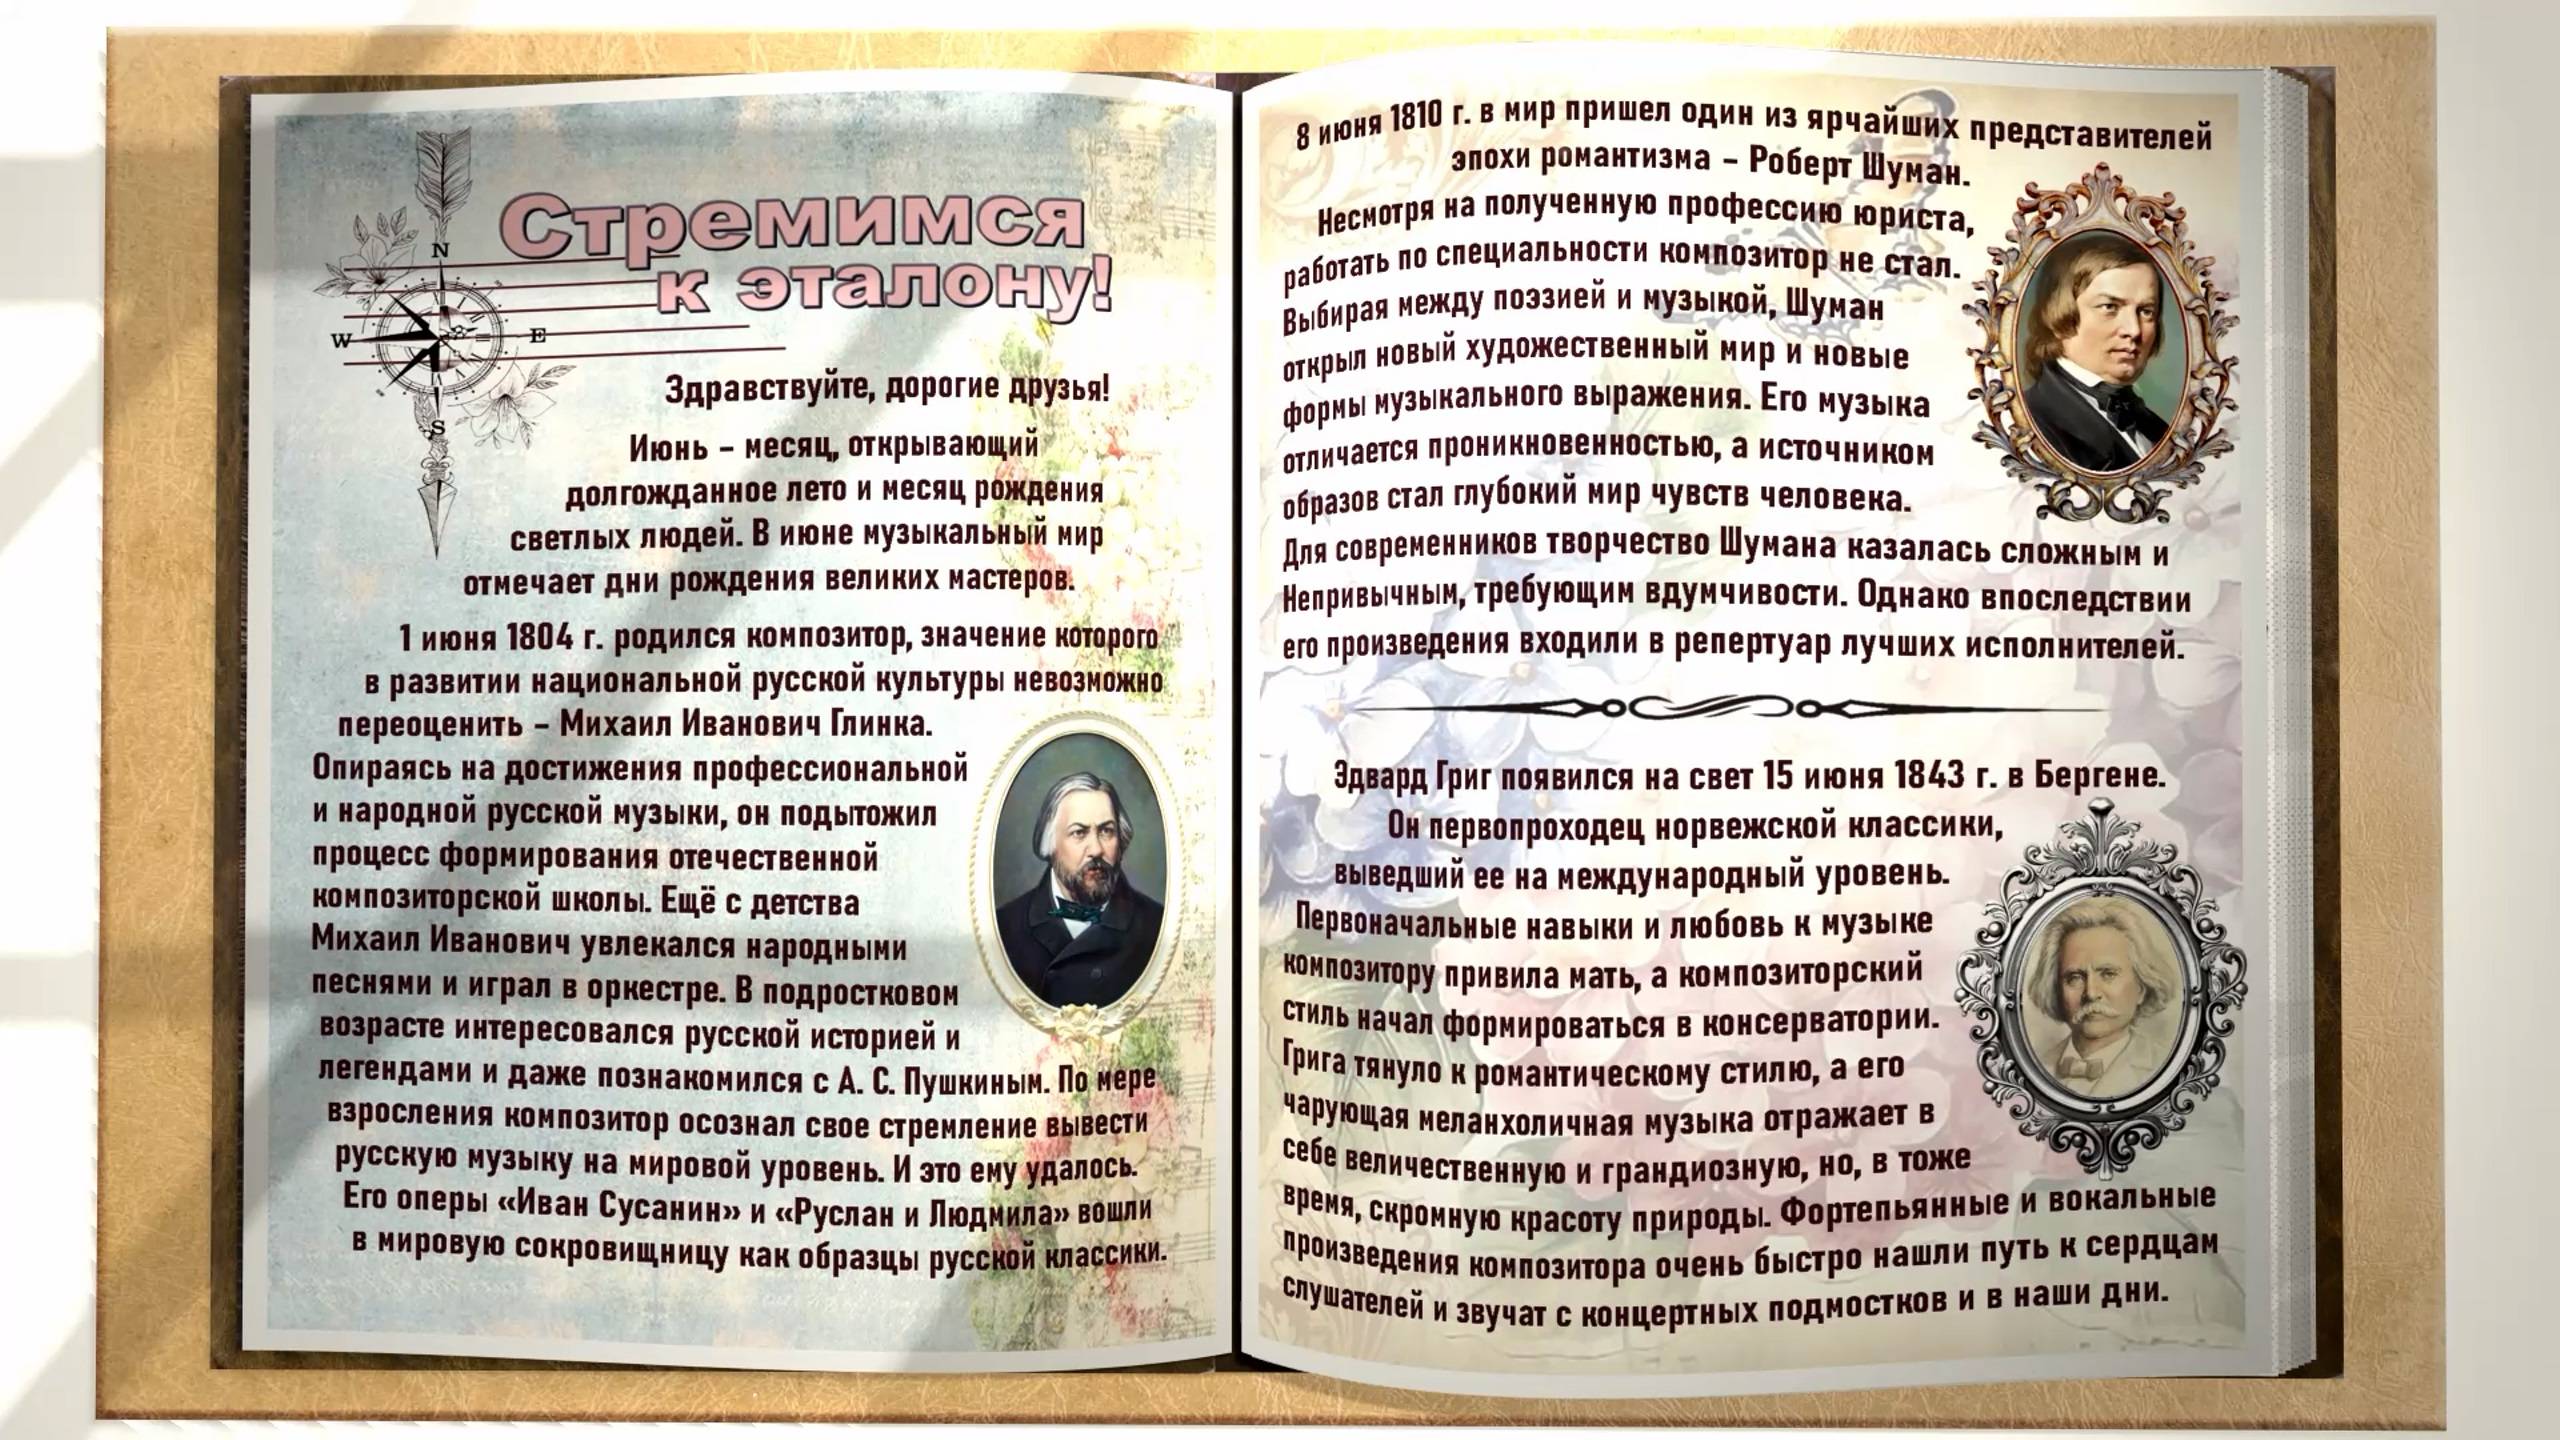 Стремимся
к эталону!
N
W
E
S
Здравствуйте, дорогие друзья!
Июнь – месяц, открывающий
долгожданное лето и месяц рождения
светлых людей. В июне музыкальный мир
отмечает дни рождения великих мастеров.
1 июня 1804 г. родился композитор, значение которого
в развитии национальной русской культуры невозможно
переоценить – Михаил Иванович Глинка.
Опираясь на достижения профессиональной
и народной русской музыки, он подытожил
процесс формирования отечественной
композиторской школы. Ещё с детства
Михаил Иванович увлекался народными
песнями и играл в оркестре. В подростковом
возрасте интересовался русской историей и
легендами и даже познакомился с А. С. Пушкиным. По мере
взросления композитор осознал свое стремление вывести
русскую музыку на мировой уровень. И это ему удалось.
Его оперы «Иван Сусанин» и «Руслан и Людмила» вошли
в мировую сокровищницу как образцы русской классики.
8 июня 1810 г. в мир пришел один из ярчайших представителей
эпохи романтизма – Роберт Шуман.
Несмотря на полученную профессию юриста,
работать по специальности композитор не стал.
Выбирая между поэзией и музыкой, Шуман
открыл новый художественный мир и новые
формы музыкального выражения. Его музыка
отличается проникновенностью, а источником
образов стал глубокий мир чувств человека.
Для современников творчество Шумана казалась сложным и
Непривычным, требующим вдумчивости. Однако впоследствии
его произведения входили в репертуар лучших исполнителей.
Эдвард Григ появился на свет 15 июня 1843 г. в Бергене.
Он первопроходец норвежской классики,
выведший ее на международный уровень.
Первоначальные навыки и любовь к музыке
композитору привила мать, а композиторский
стиль начал формироваться в консерватории.
Грига тянуло к романтическому стилю, а его
чарующая меланхоличная музыка отражает в
себе величественную и грандиозную, но, в тоже
время, скромную красоту природы. Фортепьянные и вокальные
произведения композитора очень быстро нашли путь к сердцам
слушателей и звучат с концертных подмостков и в наши дни.